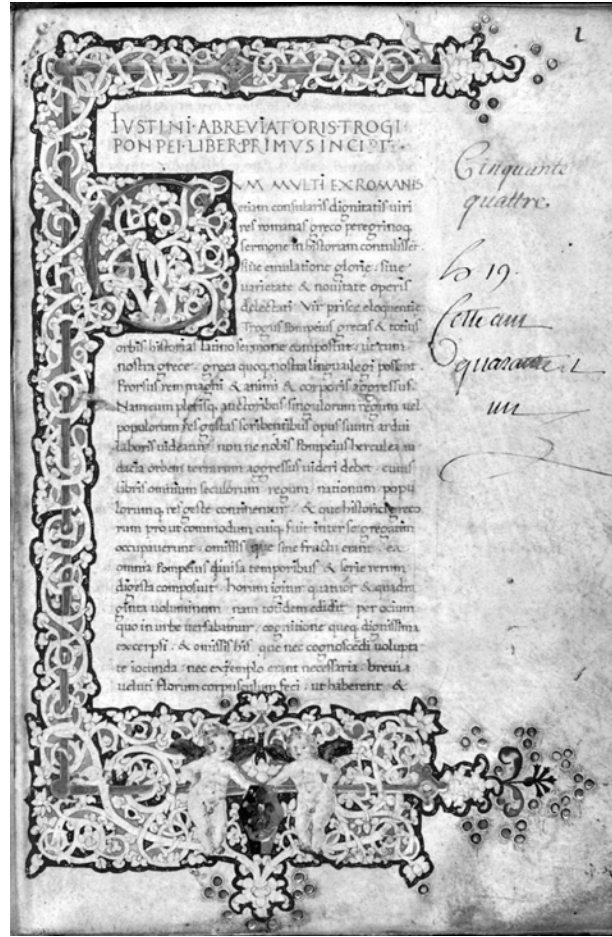 IVSTINI·ABREVIATORIS·TROGI·
PONPEI·LIBER·PRIMVS·INCIPT·
CVM MVLTI EX ROMANIS
etiam consularis dignitatis uiri
res romanas greco peregrinoq
sermone in historiam contulisset·
siue emulatione glorie· siue
uarietate & nouitate operis
delectati Vir prisce eloquentie
Trogus Pompeius grecas & totius
orbis historias latino sermone composuit· ut cum
nostra grece· greca quoq nostra lingua legi possent·
Prorsus rem magni & animi & corporis aggressus·
Nam cum plerisq auctoribus singulorum regum uel
populorum res gestas scribentibus opus suum ardui
laboris uideatur· non ne nobis Pompeius herculea au
dacia orbem terrarum aggressus uideri debet· cuius
libris omnium seculorum regum nationum popu
lorumq res geste continentur· & que historici greco
rum pro ut commodum cuiq fuit inter se gregatim
occupauerunt omissis que sine fructu erant· ea
omnia Pompeius diuisa temporibus & serie rerum
digesta composuit· horum igitur quatuor & quadra
ginta uoluminum nam totidem edidit· per ocium
quo in urbe uersabamur· cognitione queq dignissima
excerpsi· & omissis his que nec cognoscedi uolupta
te iocunda· nec exemplo erant necessaria· breue
ueluti florum corpusculum feci· ut haberent &
1
Cinquante
quattre.
19.
quarante
un